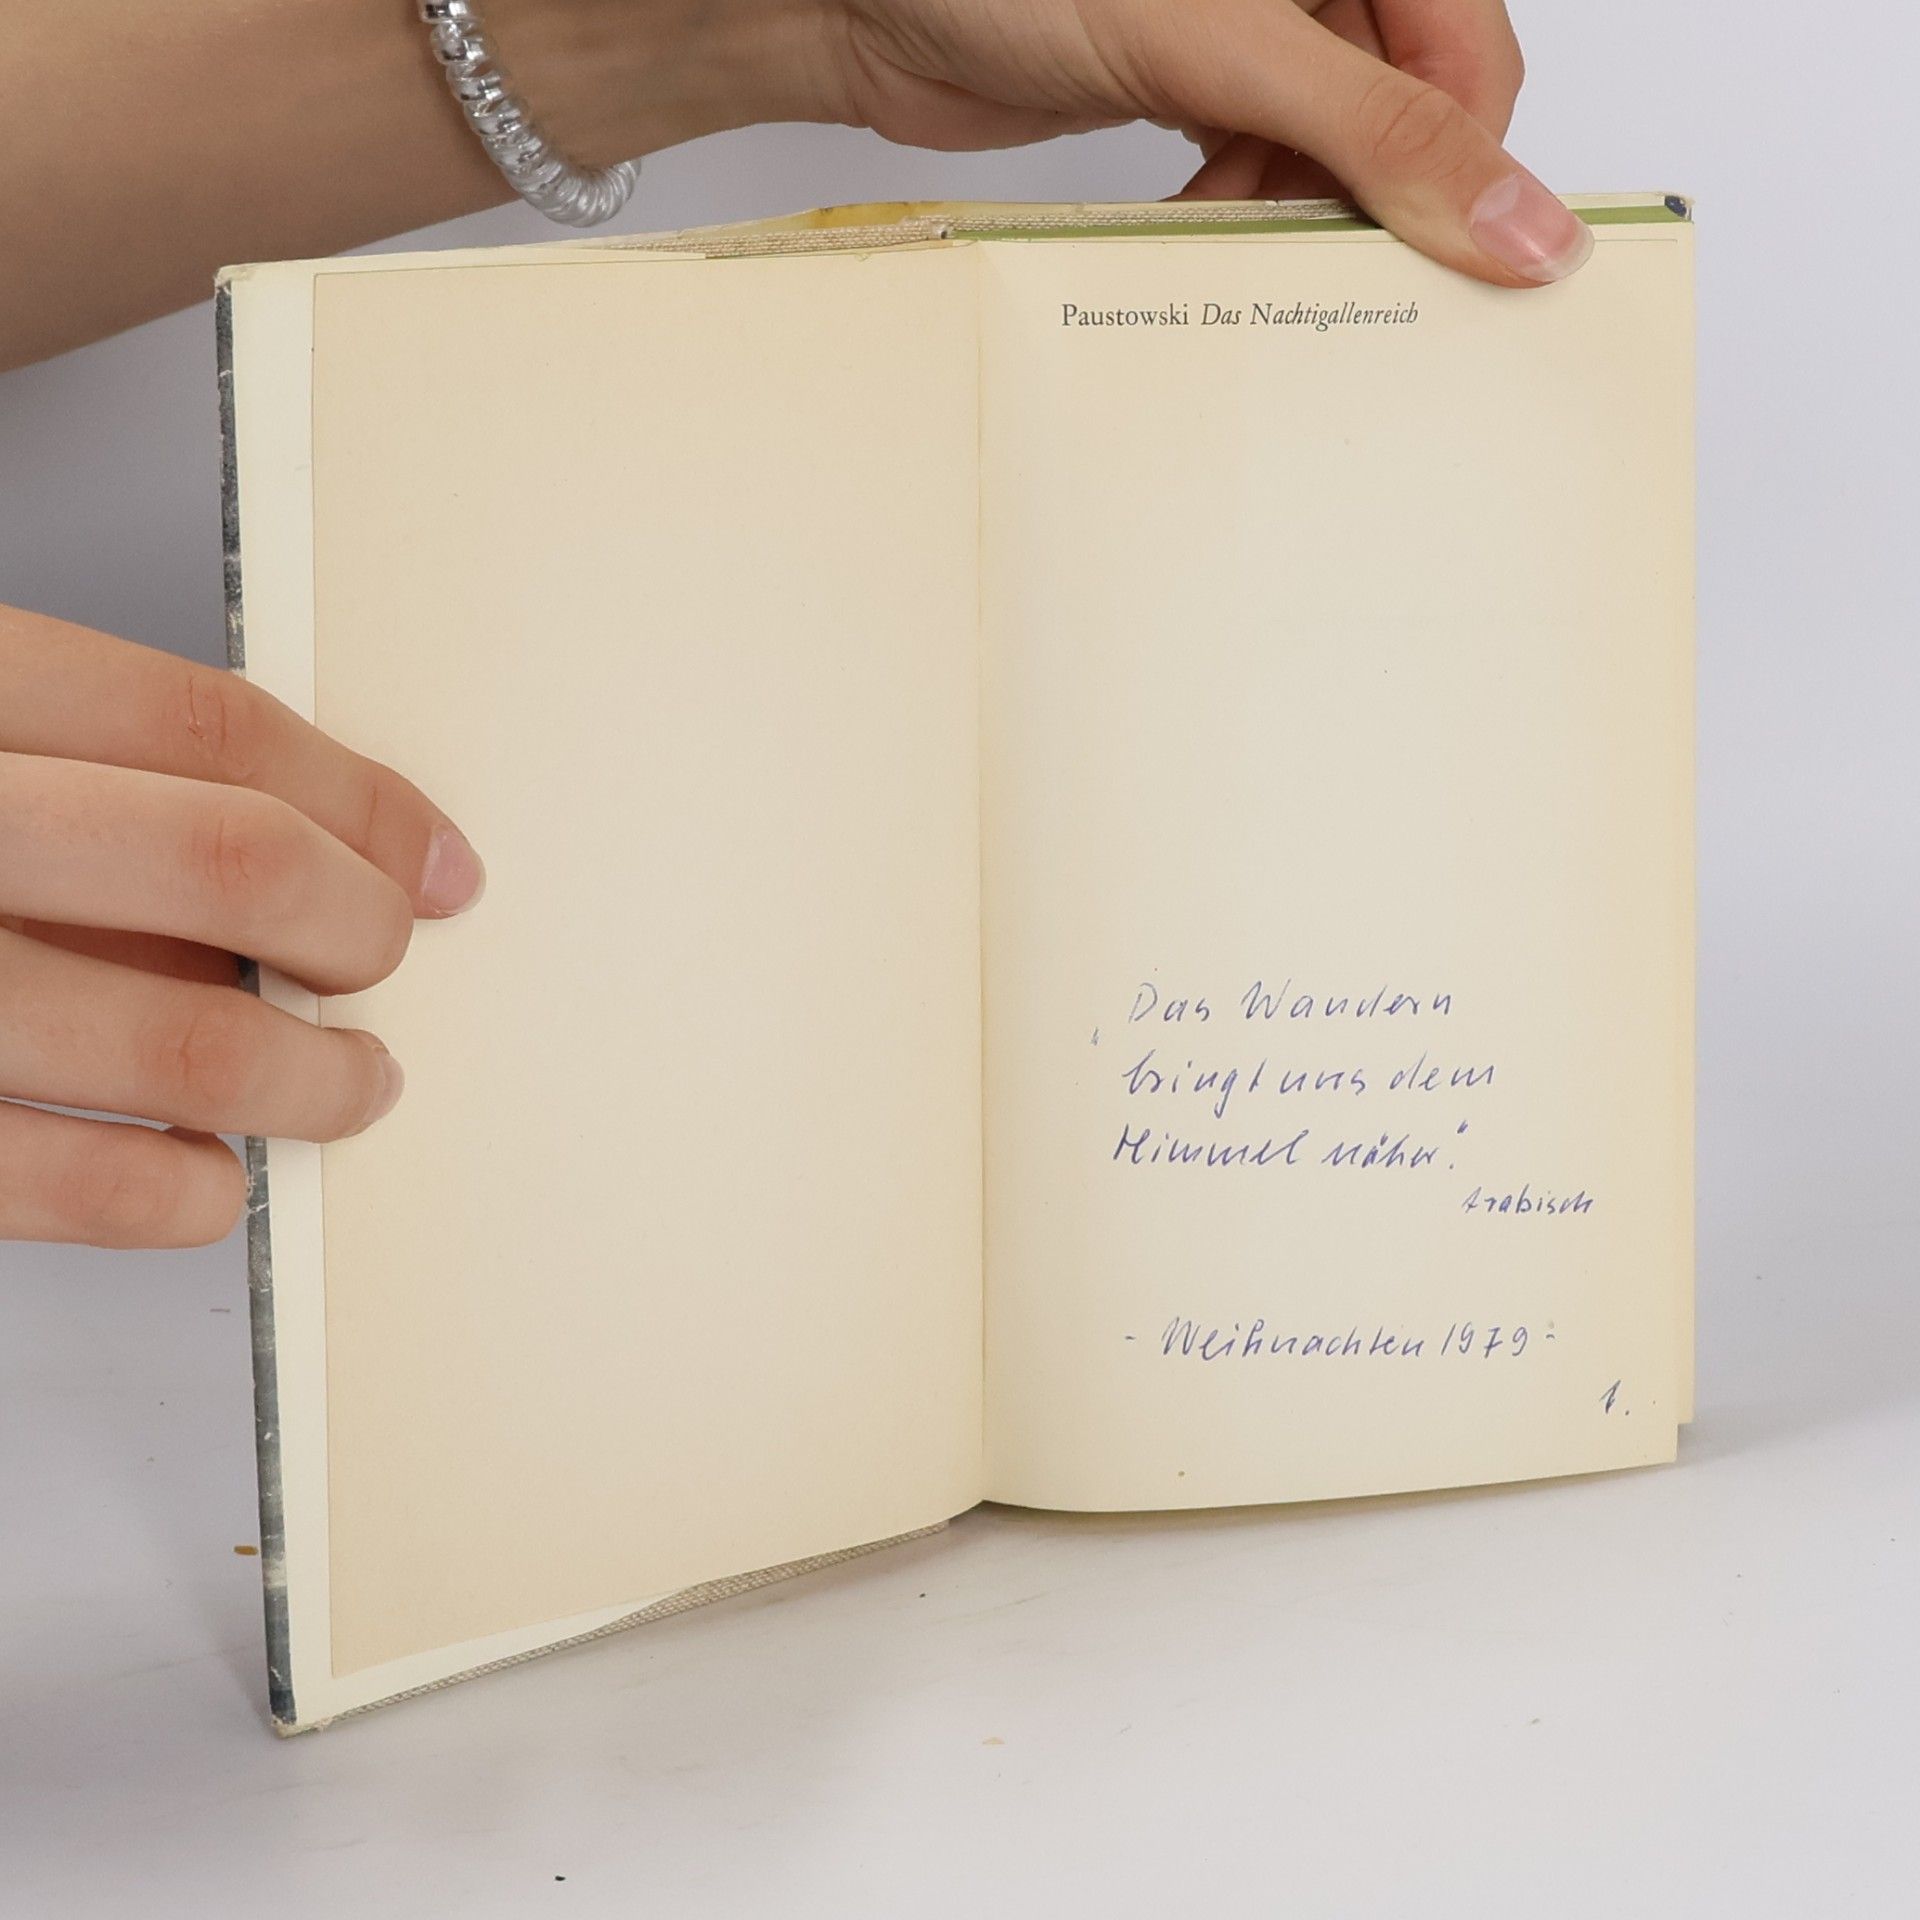 Paustowski Das Nachtigallenreich
„Das Wandern
bringt uns dem
Himmel näher."
Arabisch
- Weihnachten 1979 -